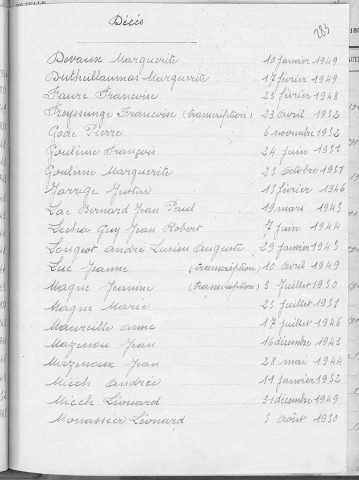 Décès
283
Devaux Marguerite 10 janvier 1949
Dutheillaumas Marguerite 17 février 1949
Faure Francoise 23 février 1948
Freysseinge Francoise (transcription) 23 avril 1932
Gode Pierre 6 novembre 1932
Goulême François 24 juin 1931
Goulême Marguerite 23 octobre 1931
Jarrige Justin 13 février 1946
Lac Bernard Jean Paul 19 mars 1943
Lecha Guy Jean Robert 7 juin 1944
Longeot André Lucien Auguste 29 janvier 1943
Luc Jeanne (transcription) 10 avril 1949
Magne Jeanine (transcription) 3 juillet 1930
Magne Marie 23 juillet 1931
Maureille Anne 17 juillet 1946
Mazenou Jean 16 décembre 1943
Mazenoux Jean 28 mai 1944
Miech Andrée 11 janvier 1932
Miech Léonard 31 décembre 1949
Monassier Léonard 3 août 1930